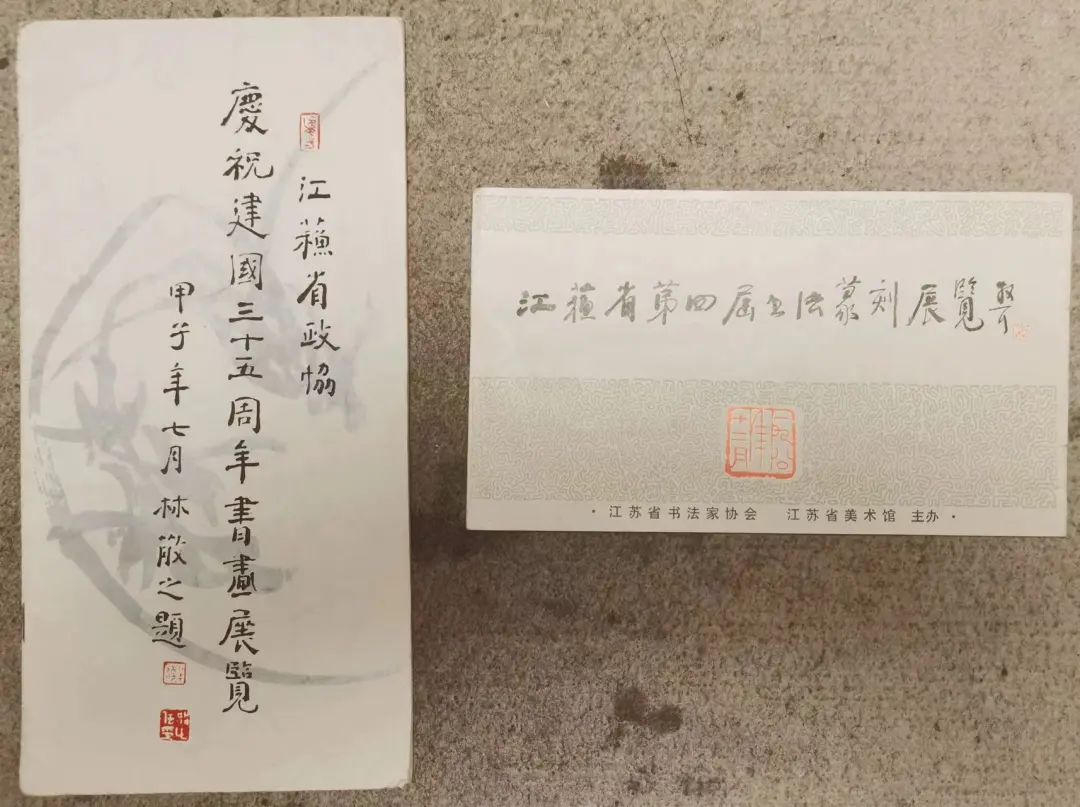 江蘓省政協
慶祝建國三十五周年書畫展覽
甲子年七月林散之題
江蘓省第四届书法篆刻展覽
·江苏省书法家协会 江苏省美术馆 主办·